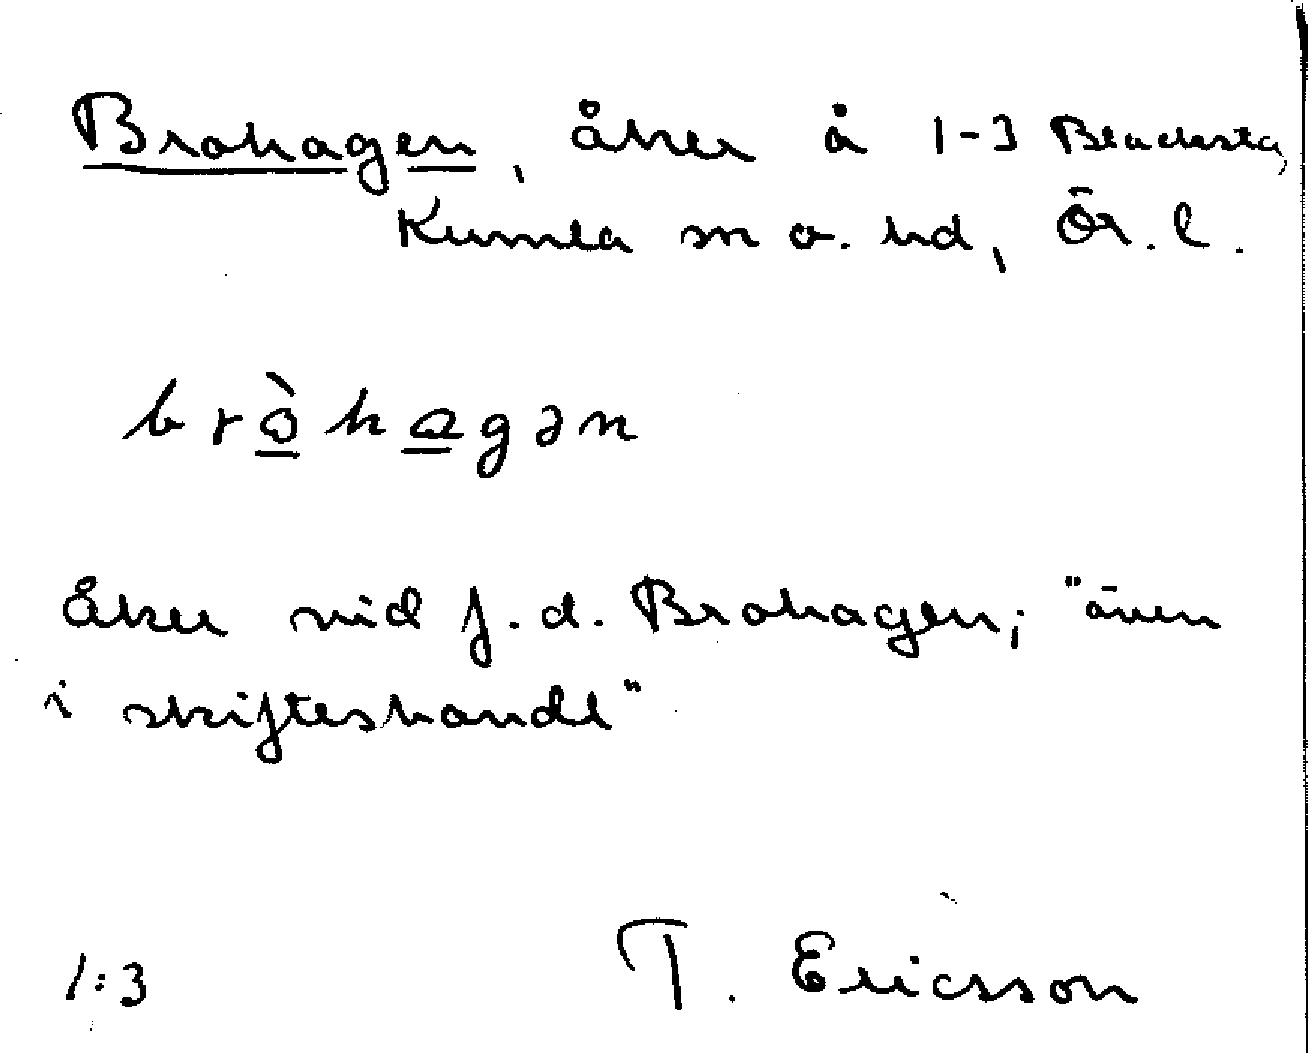 Brohagen, åker å 1-3 Blacksta,
Kumla sn o. hd, Ör. l.
bròhagən
Åker vid f.d. Brohagen; "även
i skifteshandl"
1:3 T. Ericsson